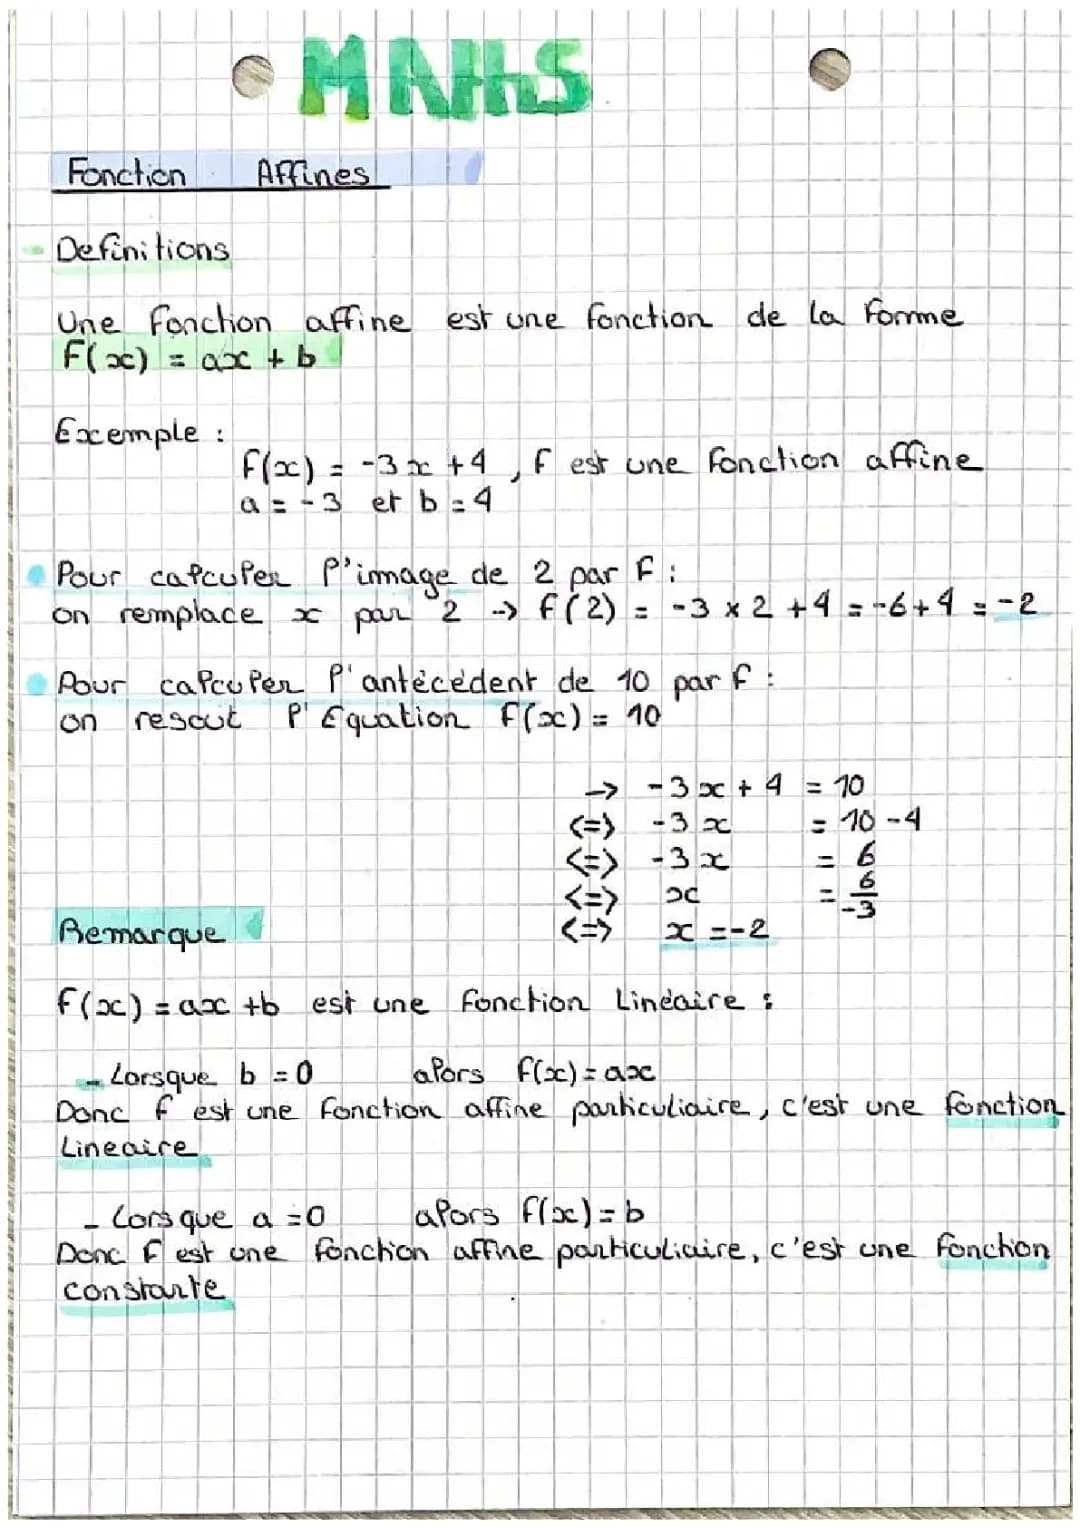 MATHS
Fonction Affines
Definitions
Une fonction affine est une fonction de la forme
F(x) = ax + b
Exemple :
f(x) = -3x + 4 , f est une fonction affine
a = -3 et b = 4
Pour calculer l'image de 2 par f :
on remplace x par 2 -> f(2) = -3 x 2 + 4 = -6 + 4 = -2
Pour calculer l'antécédent de 10 par f :
on resout l'Equation f(x) = 10
-> -3x + 4 = 10
<=> -3x = 10 - 4
<=> -3x = 6
<=> x = 6/-3
<=> x = -2
Remarque
f(x) = ax + b est une fonction Linéaire :
- Lorsque b = 0 alors f(x) = ax
Donc f est une fonction affine particuliaire, c'est une fonction
Lineaire
- Lorsque a = 0 alors f(x) = b
Donc f est une fonction affine particuliaire, c'est une fonction
constante